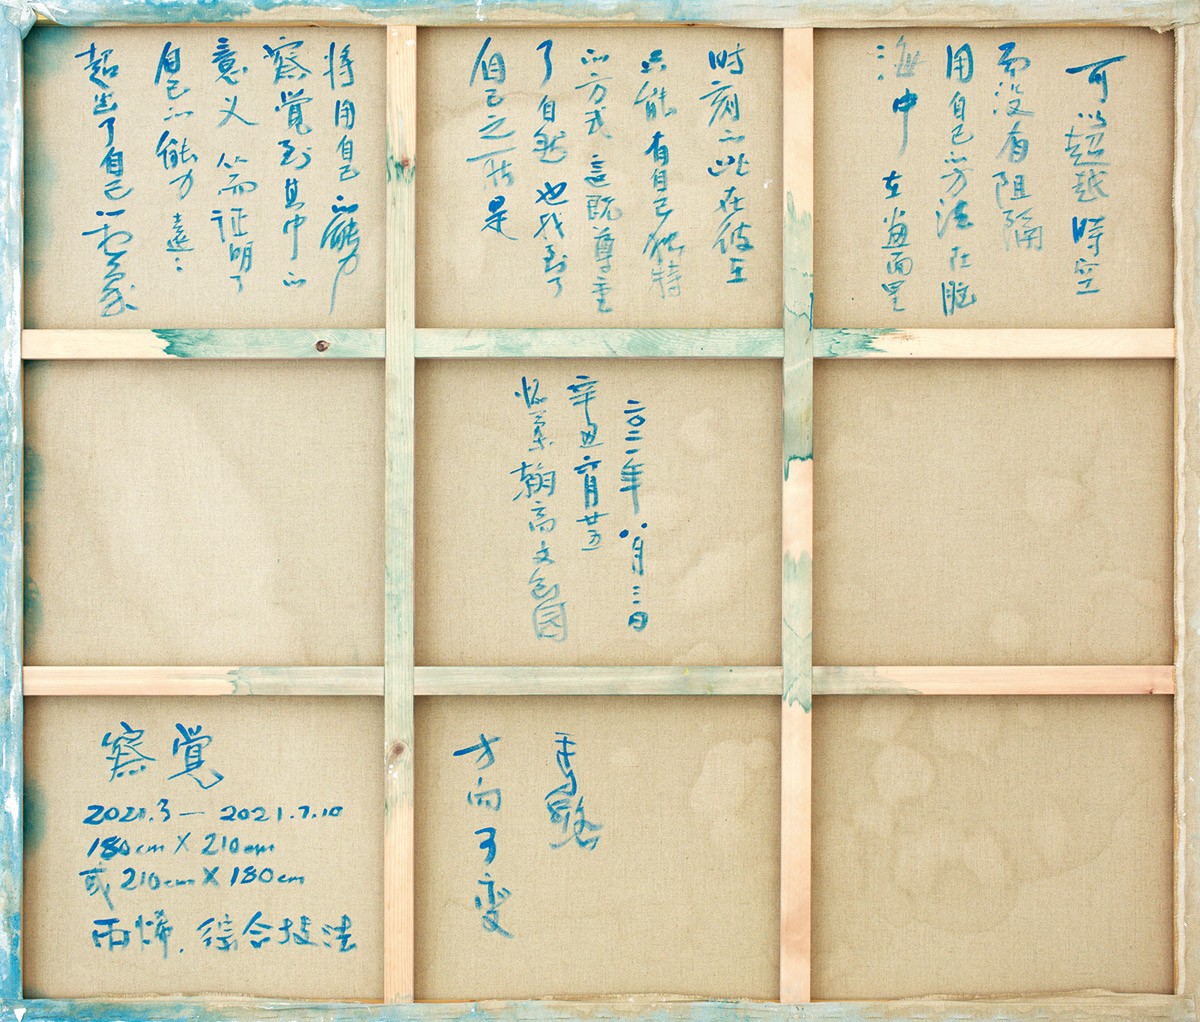 可以超越時空
而没有阻隔
用自己的方法在脑
海中在画面里
时刻的此在彼在
只能有自己独特
的方式 這既尊重
了自然也找到了
自己之所是
将用自己的能力
察觉到其中的
意义 从而证明了
自己的能力遠:
超出了自己的想象
二〇二一年八月三日
辛丑六月廿五
怀柔翰高文创园
察覚
2021.3—2021.7.10
180cm X 210cm
或210cm X 180cm
丙烯.综合技法
马路
方向可变